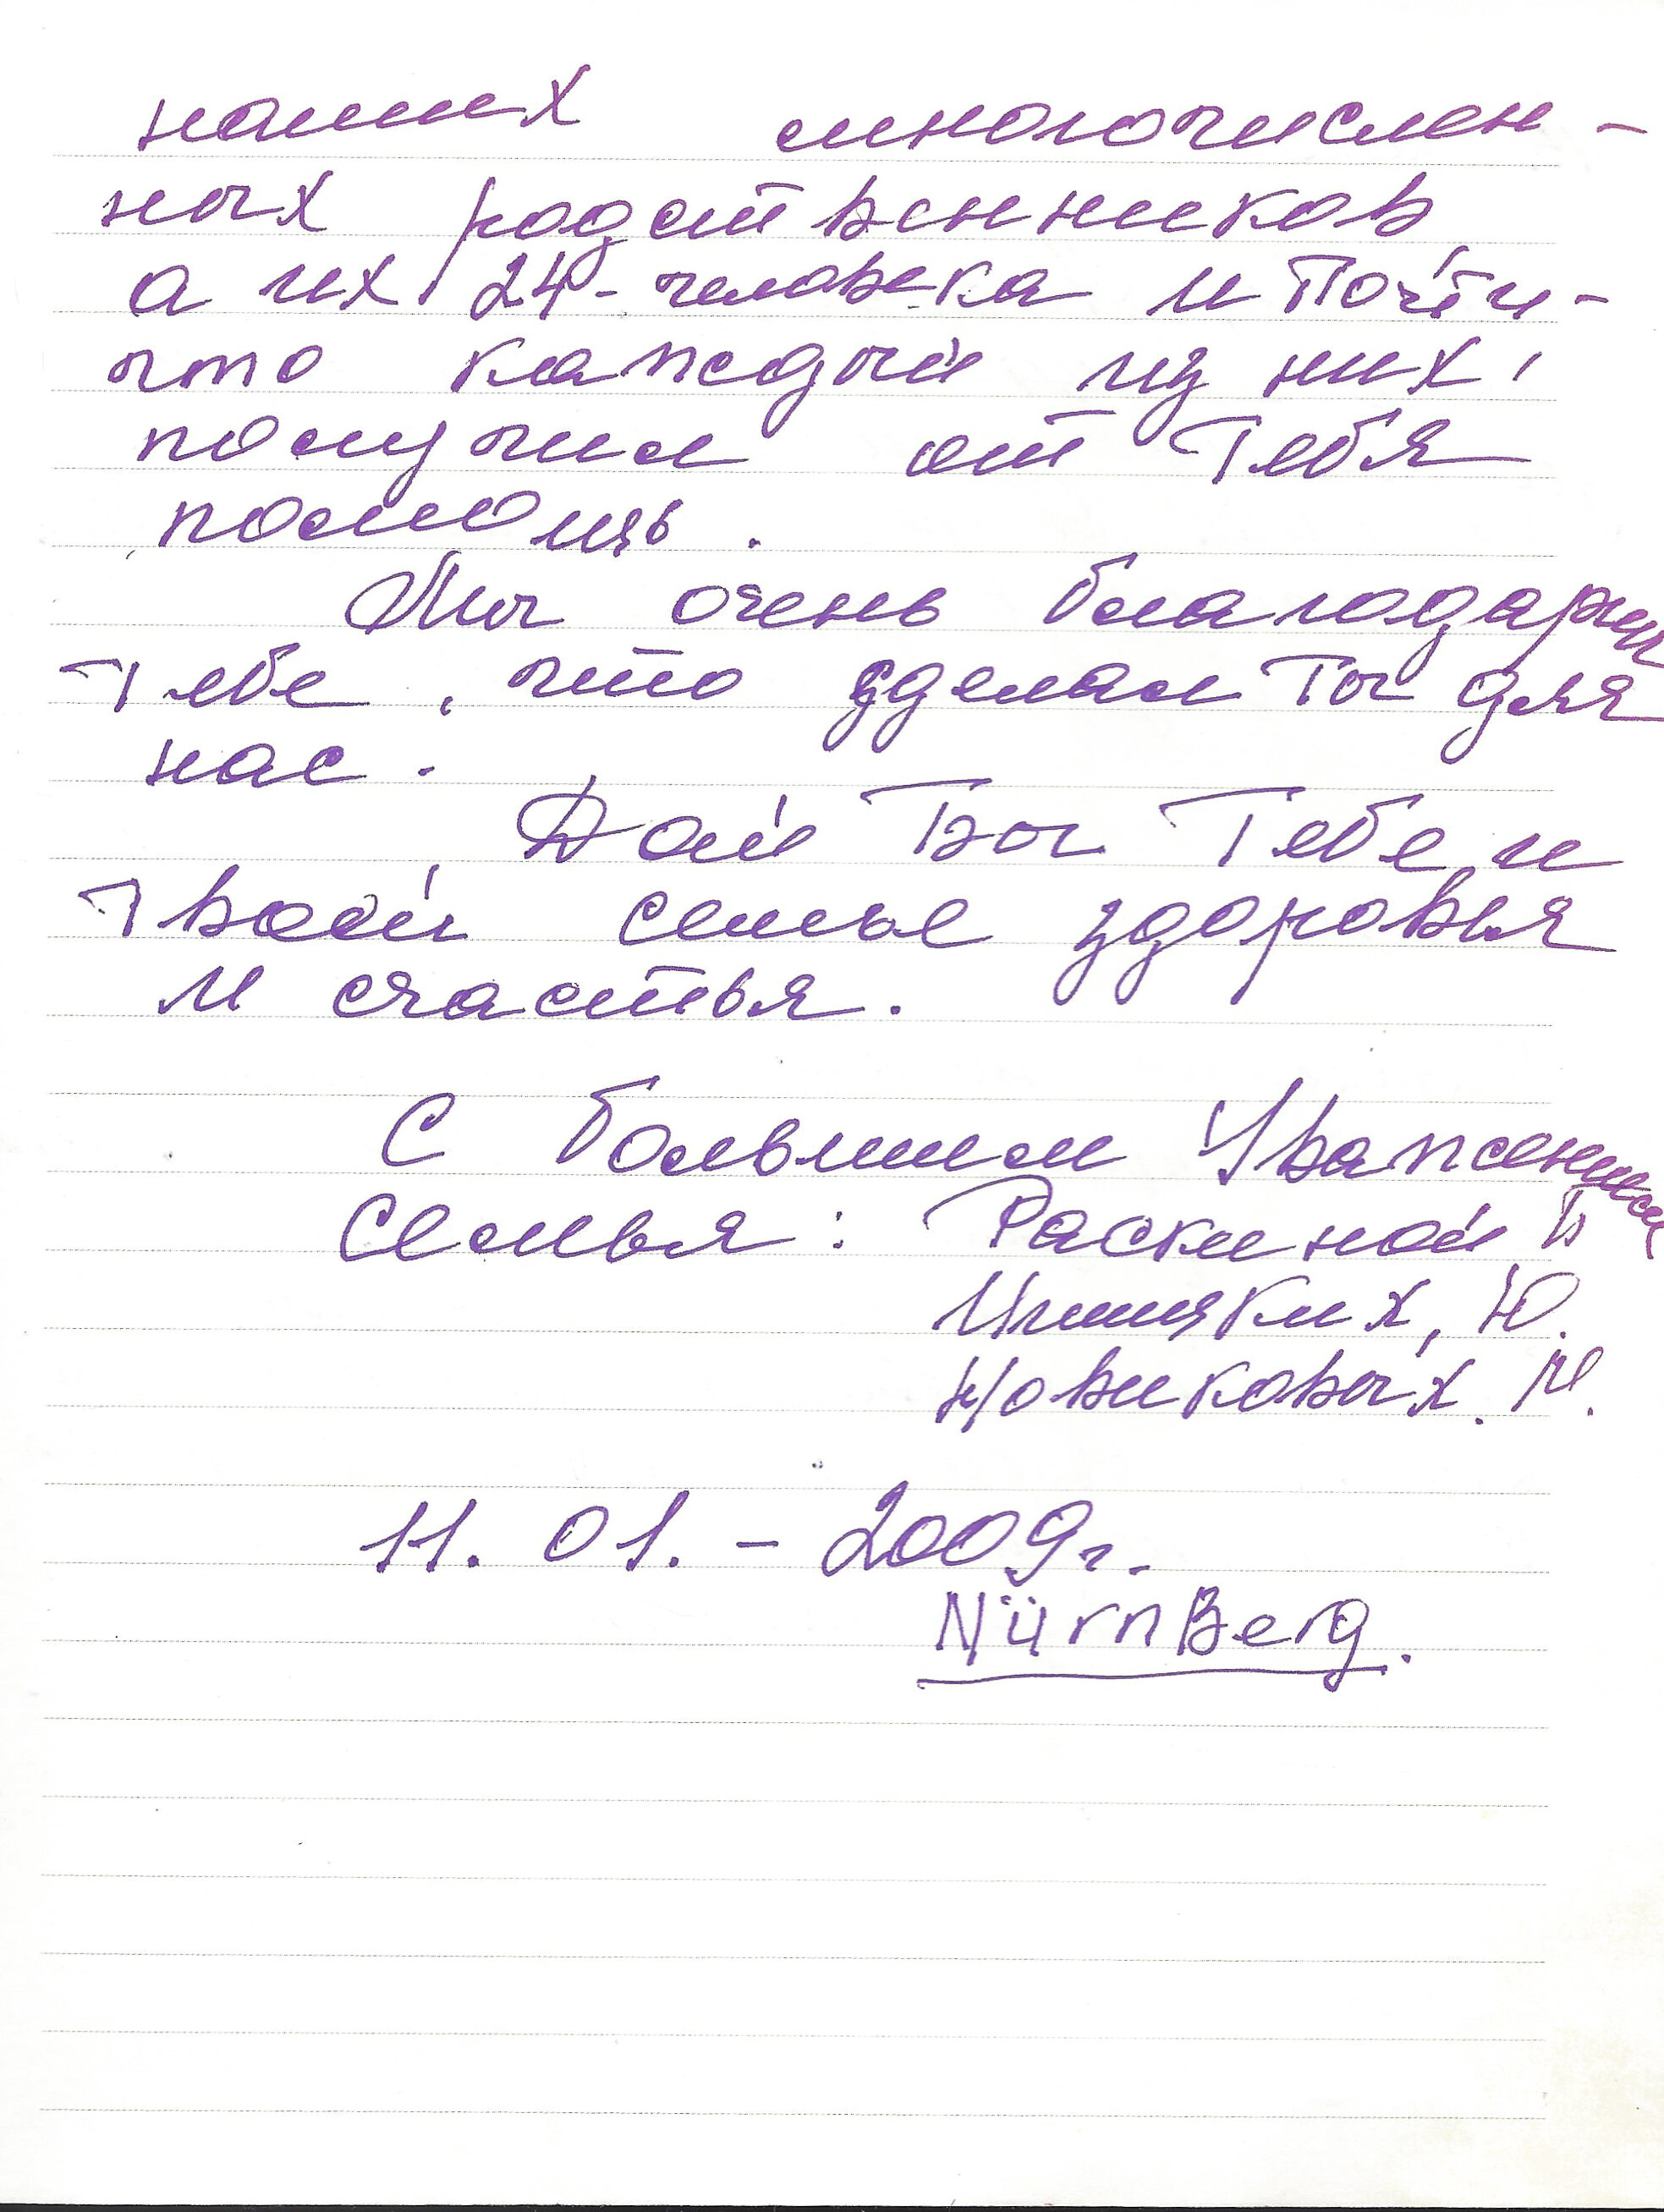 наших многочислен-
ных родственников
а их 24-человека и Почти-
что каждый из них,
получил от Тебя
помощь.
Мы очень благодарны
Тебе, что сделал Ты для
нас.
Дай Бог Тебе и
Твоей семье здоровья
и счастья.
С большим Уважением
Семья: Раскиной Б
Ю.
Новиковых. М.
11. 01. - 2009г.
NürnBerg.